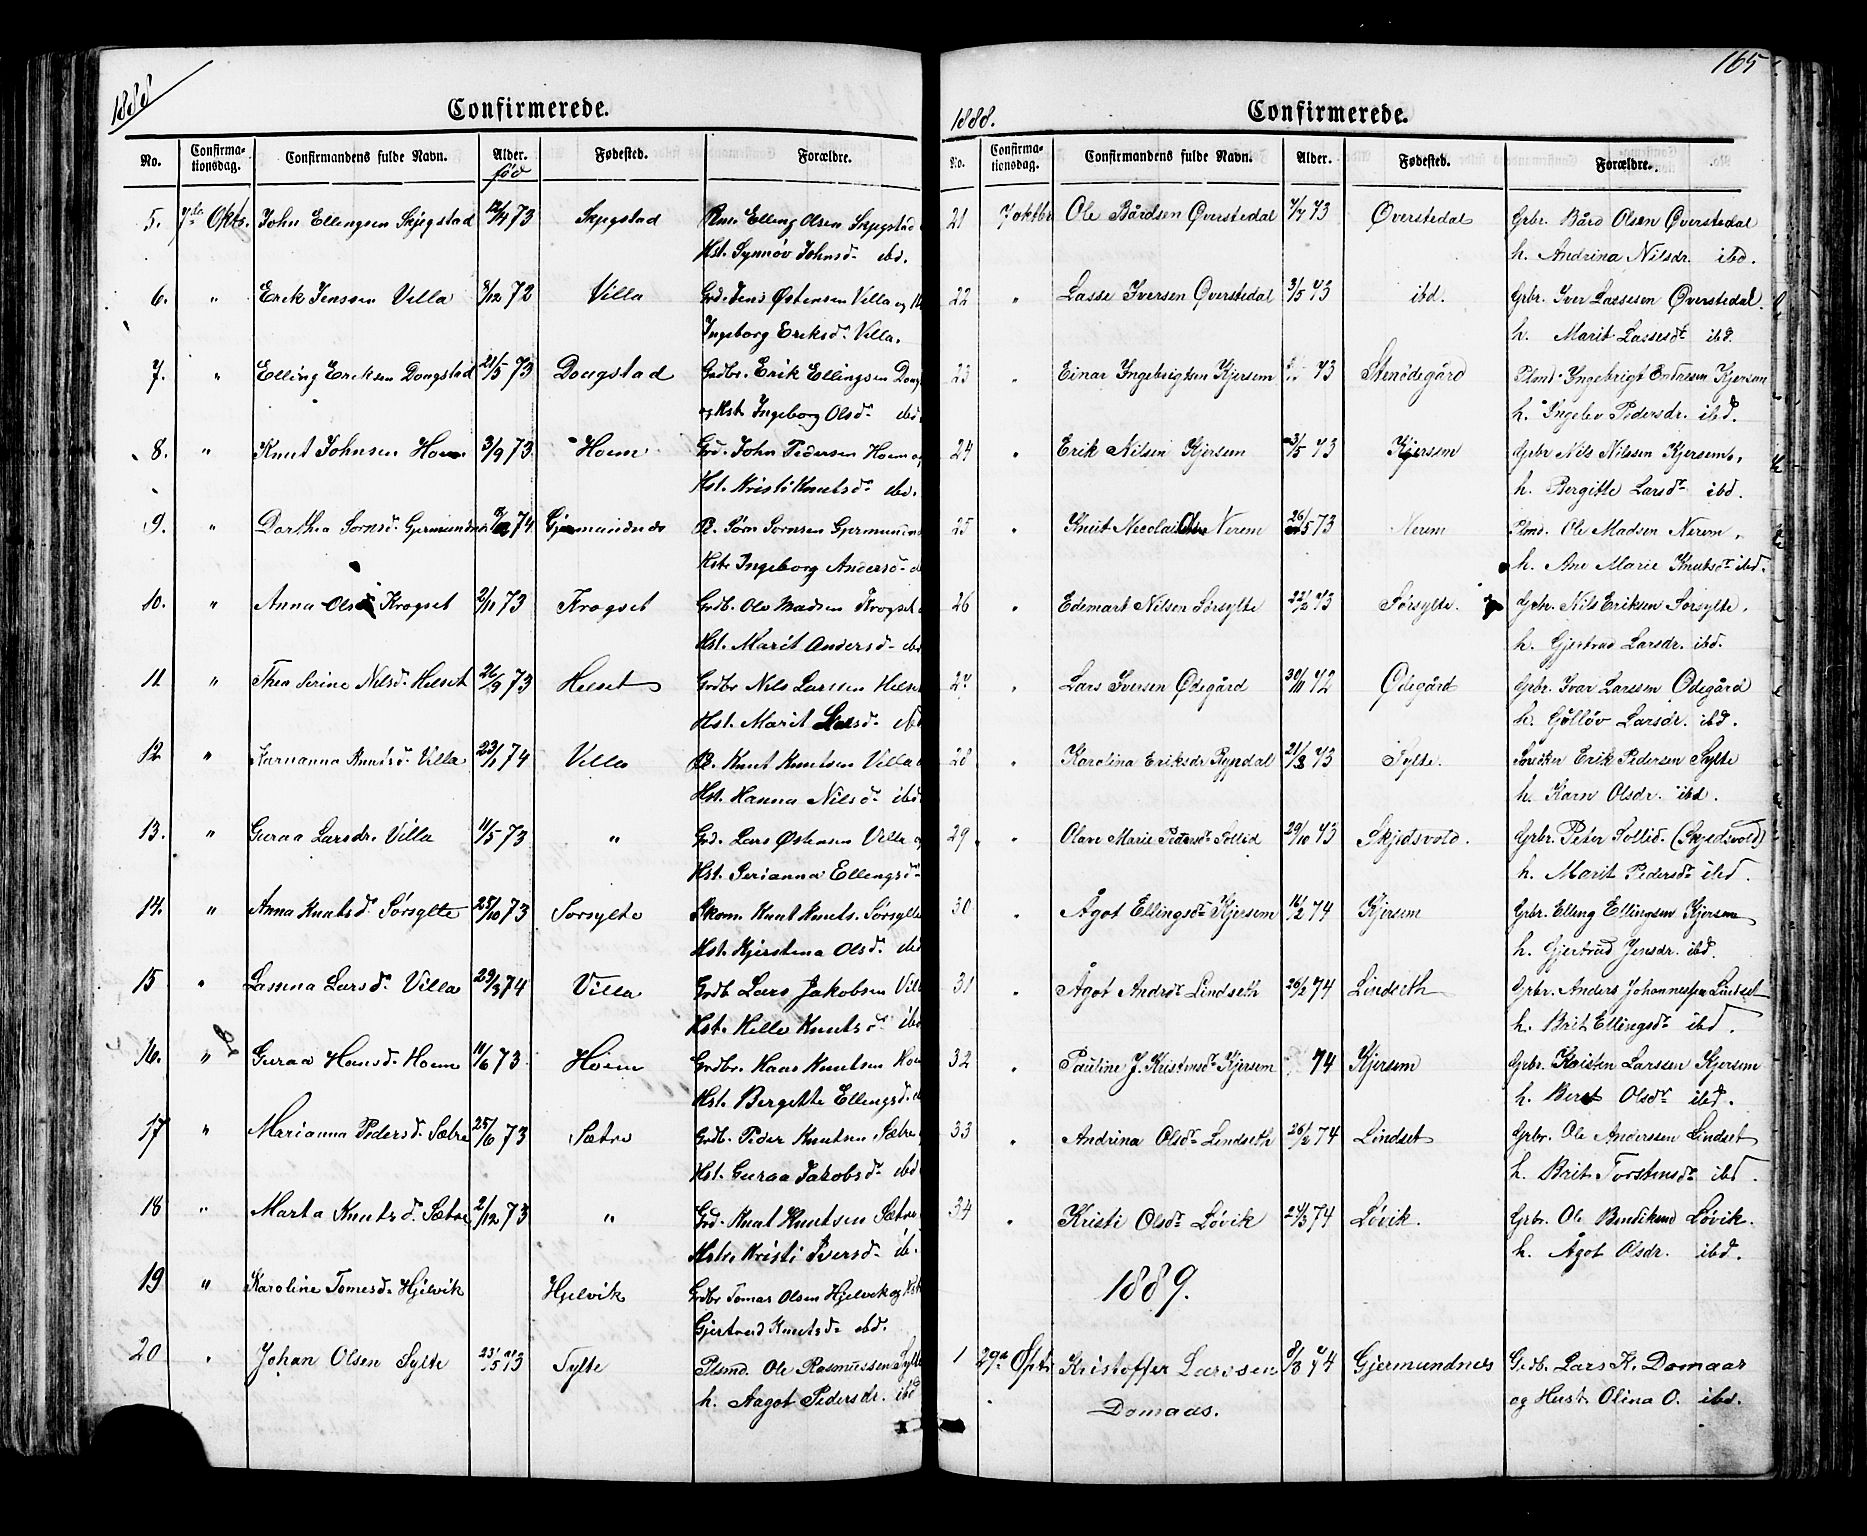 1888
Confirmerede.
No. Confirmationsdag. Confirmandens fulde Navn. Alder. Fødested. Forældre.
fød
5. 7de Oktb. John Ellingsen Skjegstad 73 Skjegstad Elling Olsen Skjegstad
Hst. Synnøv Johnsd. ibd.
6. " Erik Jenssen Villa 3/12 72 Villa Grd. Jens Østensen Villa og
Ingeborg Eriksd. Villa.
7. " Elling Eriksen Dougstad 21/5 73 Dougstad Grdbr. Erik Ellingsen
og Hst. Ingeborg Olsd. ibd.
8. " Knut Johnsen Hoem 3/9 73 Hoem Grd. John Pedersen Hoem og
Hst. Kristi Knutsd. ibd.
9. " Dorthea Sørnsd. Gjermundnes 74 Gjermundnes Sørn Sørnsen
Hst. Ingeborg Andersd.
10. " Anna Krogset 2/11 73 Krogset Grdb. Ole Madsen Krogset
Hst. Marit Andersd. ibd
11. " Thea Serine Nilsd. Helset 26/9 73 Helset Grdbr. Nils Larssen Helset
Hst. Marit ibd
12. " Knutsd. Villa 23/1 74 Villa Knut Knutsen Villa
Hst. Hanna Nilsd. ibd
13. " Guraa Larsdr. Villa 11/5 73 " Grd. Lars Østensen Villa og
Hst. Serianna Ellingsd.
14. " Anna Knutsd. Sørsylte 25/10 73 Sørsylte Skom. Knut Knuts. Sørsylte
Hst. Kjerstina Olsd. ibd
15 " Larsd. Villa 29/3 74 Villa Grdb. Lars Jakobsen
Hst. Knutsd. ibd
16. " Guraa Hansd. Hoem 11/6 73 Hoem Grdbr. Hans Knutsen
Hst. Bergitte Ellingsd.
17 " Marianna Pedersd. Sætre 73 Sætre Grdb. Peder Knutsen Sætre
Hst. Guraa Jakobsd. ibd
18 " Marta Knutsd. Sætre 2/12 73 " Grd. Knut Knutsen Sætre
Hst. Kristi Iversd. ib.
19 " Karoline Tomesd. Hjelvik Hjelvik Grdbr. Tomas Olsen Hjelvik og
Gjertrud Knutsd. ibd.
20 " Johan Olsen Sylte 73 Sylte Plsmd. Ole Rasmussen Sylte
h. Aagot Pedersdr. ibd
165
1888.
Confirmerede.
No. Confirmationsdag. Confirmandens fulde Navn. Alder. Fødested. Forældre.
21 7 oktbr Ole Bårdsen Øverstedal 73 Øverstedal Grbr. Bård Olsen Øverstedal
h. Andrina Nilsdr. ibd.
22 " Lasse Iversen Øverstedal 3/5 73 ibd. Grbr. Iver Lassesen Øverstedal.
h. Marit Lassesdr ibd
23 " Einar Ingebrigtsen Kjersem 73 Stenødegård Plmd. Ingebrigt Endresen Kjersem
h. Pedersdr. ibd.
24 " Erik Nilsen Kjersem 73 Kjersem Grbr Nils Nilssen Kjersem.
h. Bergitte Larsdr ibd.
25 " Knut Nerem 26/5 73 Nerem Plmd. Ole Madsen Nerem.
h. Ane Marie Knutsdr ibd.
26 " Edemart Nilsen Sørsylte 22/2 73 Sørsylte. Grbr. Nils Eriksen Sørsylte.
h. Gjertrud Larsdr. ibd.
27 " Lars Iversen Ødegård 72 Ødegård Grbr. Ivar Larssen Ødegård
h. Larsdr. ibd.
28 " Karolina Eriksdr Ryndal 73 Sylte. Erik Pedersen Sylte
h. Karn Olsdr. ibd.
29 " Marie Pedersdr Sollid 29/10 73 Skjedsvold. Grbr. Peter Sollid. (Skjedsvold)
h. Marit Pedersdr ibd.
30 " Ågot Ellingsdr Kjersem 74 Kjersem Grbr. Elling Ellingsen Kjersem
h. Gjertrud Jensdr. ibd.
31 " Ågot Andrsdr Lindseth 26/2 74 Lindseth Grbr. Anders Johannessen Lindset
h. Brit Ellingsdr ibd.
32 " Pauline J. Kristensdr Kjersem 74 Kjersem Grbr. Kristen Larssen Kjersem
h. Beret Olsdr ibd.
33 " Andrina Olsdr Lindseth 26/2 74 Lindset Grbr. Ole Anderssen Lindset
h. Brit Torstensdr ibd.
34 " Kristi Olsdr Løvik 74 Løvik. Grbr. Ole Løvik.
h. Ågot Olsdr. ibd.
1889.
1 29de Kristoffer Larssen 74 Gjermundnes Grdb. Lars K. Domaas
Domaas. og Hust. Olina O. ibd.